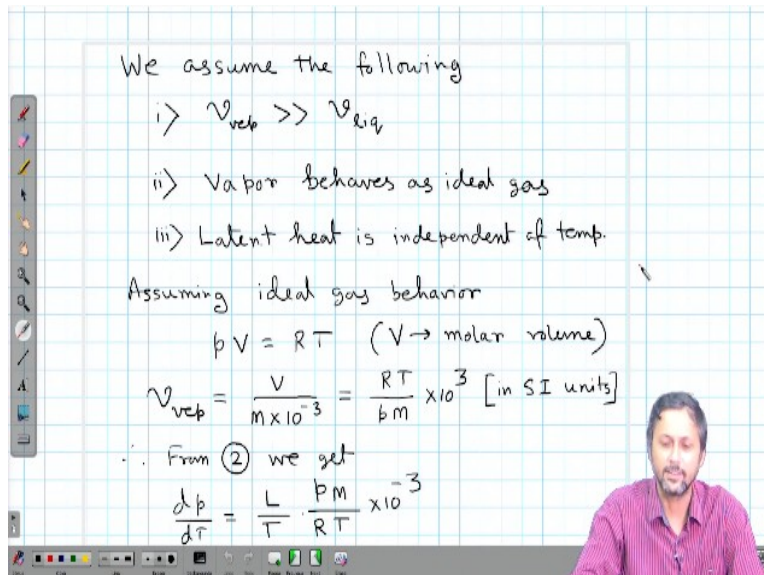 We assume the following
i) v_vap >> v_liq
ii) Vapor behaves as ideal gas
iii) Latent heat is independent of temp.
Assuming ideal gas behavior
pV = RT (V → molar volume)
v_vap = V / (M × 10^-3) = RT / (pM) × 10^3 [in SI units]
∴ From ② we get
dp/dT = L/T · pM/RT × 10^-3